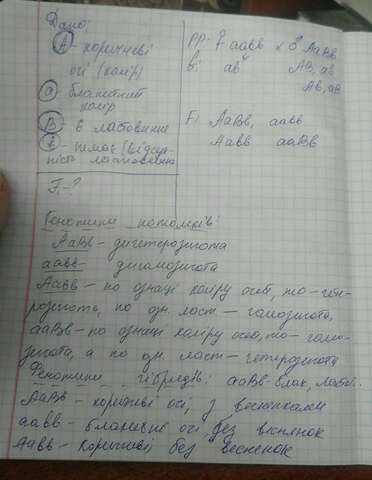 Дано:
А - коричневі
очі (колір)
а - блакитний
колір
В - є ластовиння
в - немає (відсут-
ність ластовиння
F₁ - ?
РР: ♀ аавв × ♂ АаВв
G: ав АВ, ав
Ав, аВ
F₁ АаВв, аавв
Аавв ааВв
Генотипи нотомків:
АаВв - дигетерозигота
аавв - дигомозигота
Аавв - по ознаці коліру очей, то - гете-
розигота, по озн. ласт. - гомозигота,
ааВв - по ознаці коліру очей, то - гомо-
зигота, а по озн. ласт - гетерозигота
Фенотипи гібридів: ааВв - блак, ласт.
АаВв - коричневі очі, з веснянками
аавв - блакитні очі без веснянок
Аавв - коричневі без веснянок